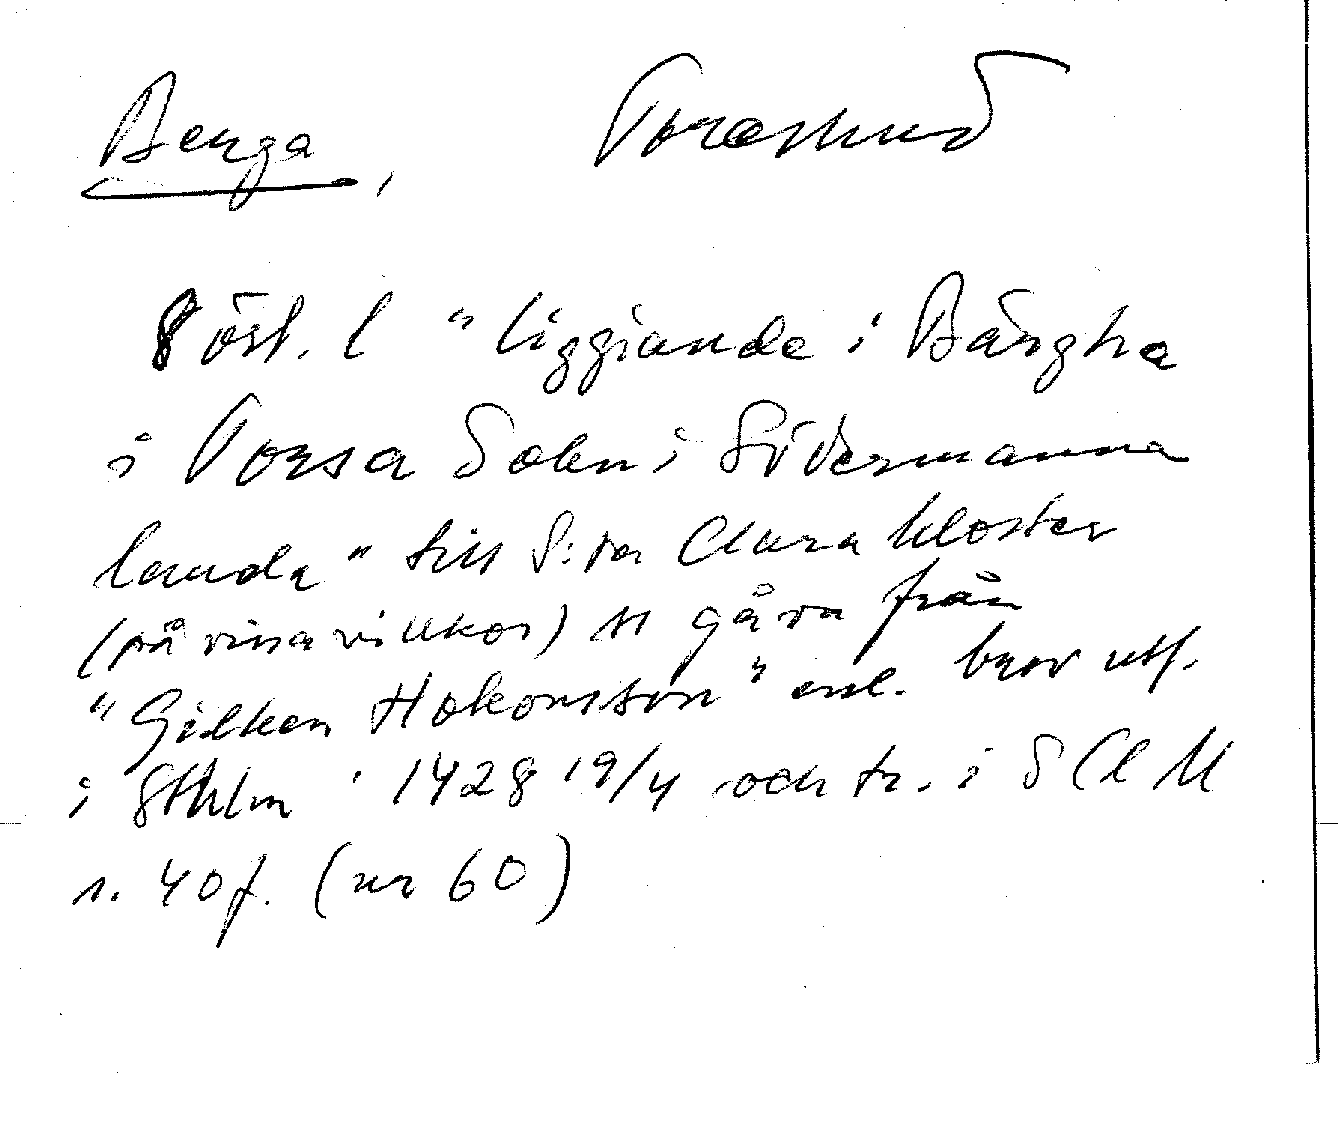 Berga, Toresund
8 örl. l "liggiande i Bärgha
i Torsa Sokn i Södermanna
landa" till S:ta Clara kloster
(på vissa villkor) ss gåva från
"Gelken Hakonsson" enl. brev utf.
i Sthlm 1428 19/4 och tr. i SClM
s. 40f. (nr 60)